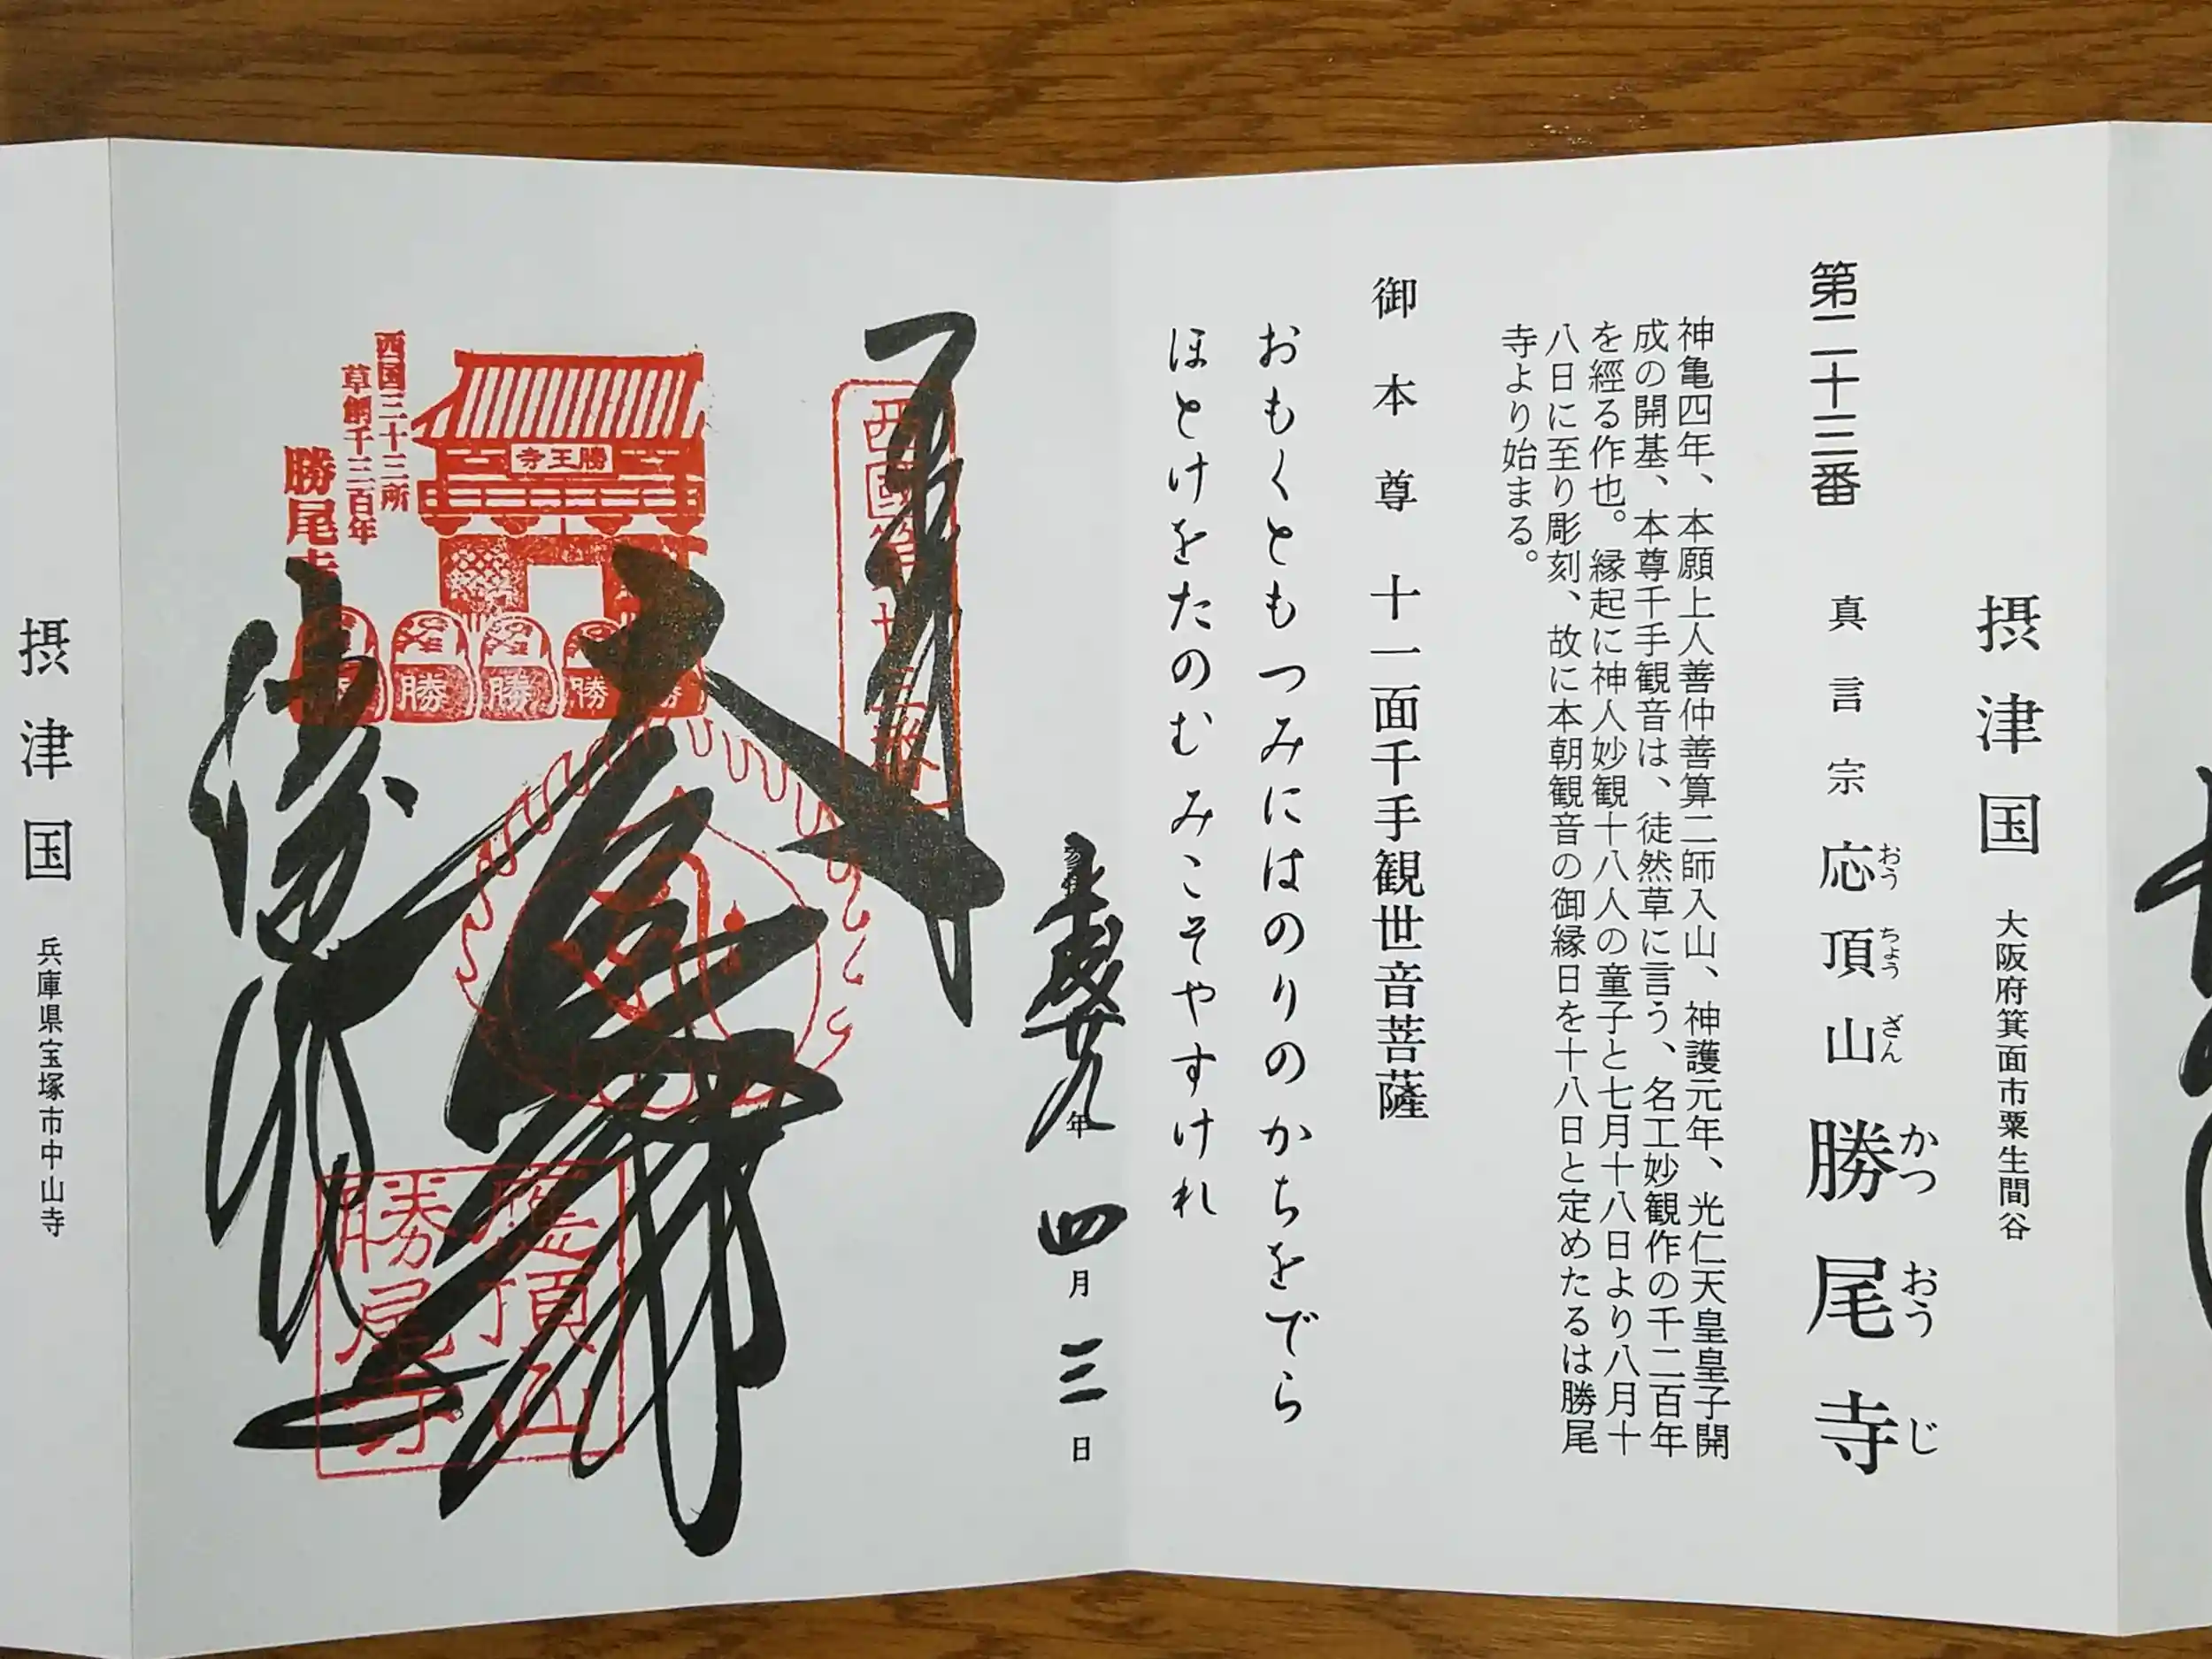 摂津国 大阪府箕面市粟生間谷
第二十三番 真言宗 応頂山 勝尾寺
おうちょうざん かつおうじ
神亀四年、本願上人善仲善算二師入山、神護元年、光仁天皇皇子開
成の開基、本尊千手観音は、徒然草に言う、名工妙観作の千二百年
を經る作也。縁起に神人妙観十八人の童子と七月十八日より八月十
八日に至り彫刻、故に本朝観音の御縁日を十八日と定めたるは勝尾
寺より始まる。
御本尊 十一面千手観世音菩薩
おもくとも つみにはのりの かちをでら
ほとけをたのむ みこそやすけれ
年 四月 三日
奉拝
西國第廿三番
大悲殿
西国三十三所
草創千三百年
勝尾寺
勝王寺
勝
勝
勝
勝
應頂山
勝尾寺
摂津国 兵庫県宝塚市中山寺